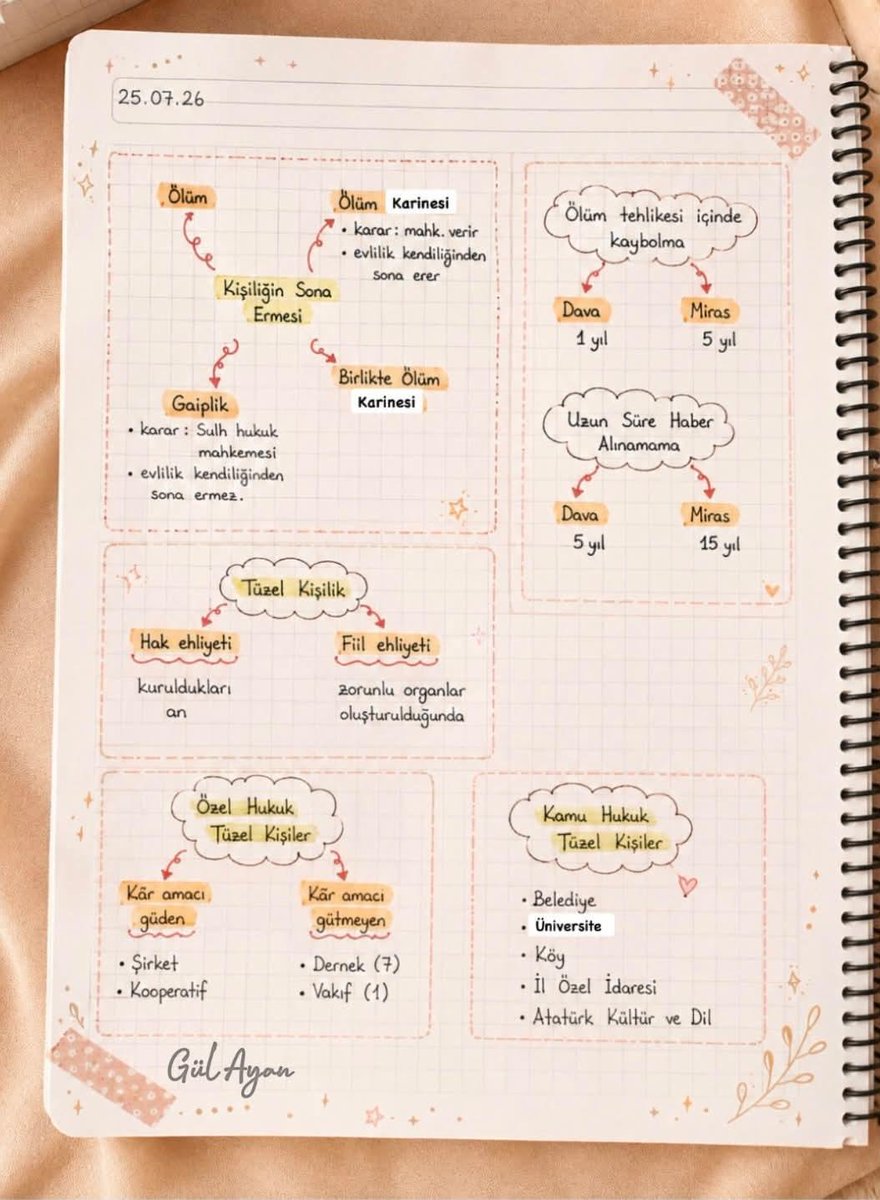 25.07.26
Ölüm
Ölüm Karinesi
• karar : mahk. verir
• evlilik kendiliğinden
sona erer
Kişiliğin Sona
Ermesi
Gaiplik
• karar : Sulh hukuk
mahkemesi
• evlilik kendiliğinden
sona ermez.
Birlikte Ölüm
Karinesi
Ölüm tehlikesi içinde
kaybolma
Dava
1 yıl
Miras
5 yıl
Uzun Süre Haber
Alınamama
Dava
5 yıl
Miras
15 yıl
Tüzel Kişilik
Hak ehliyeti
kuruldukları
an
Fiil ehliyeti
zorunlu organlar
oluşturulduğunda
Özel Hukuk
Tüzel Kişiler
Kâr amacı
güden
• Şirket
• Kooperatif
Kâr amacı
gütmeyen
• Dernek (7)
• Vakıf (1)
Kamu Hukuk
Tüzel Kişiler
• Belediye
• Üniversite
• Köy
• İl Özel İdaresi
• Atatürk Kültür ve Dil
Gül Ayan